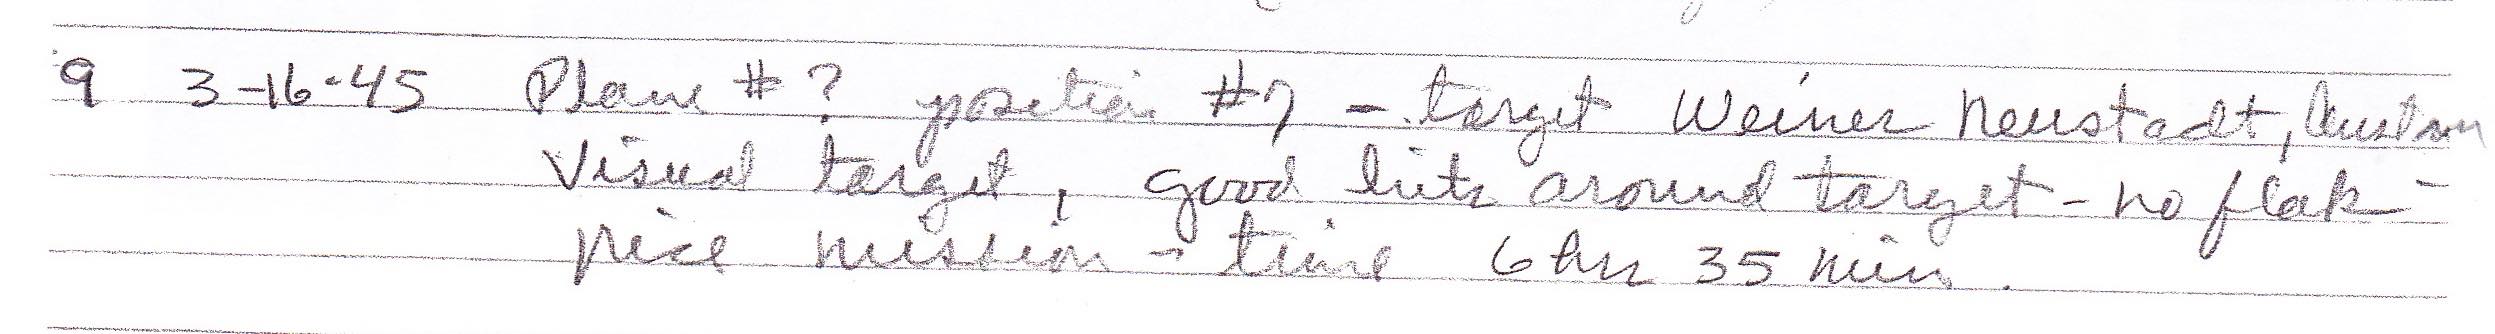 9 3-16-45 Plane # ? position #7 - target Weiner Neustadt,
Visual target, good hits around target - no flak -
Nice mission - time 6 hrs 35 min.